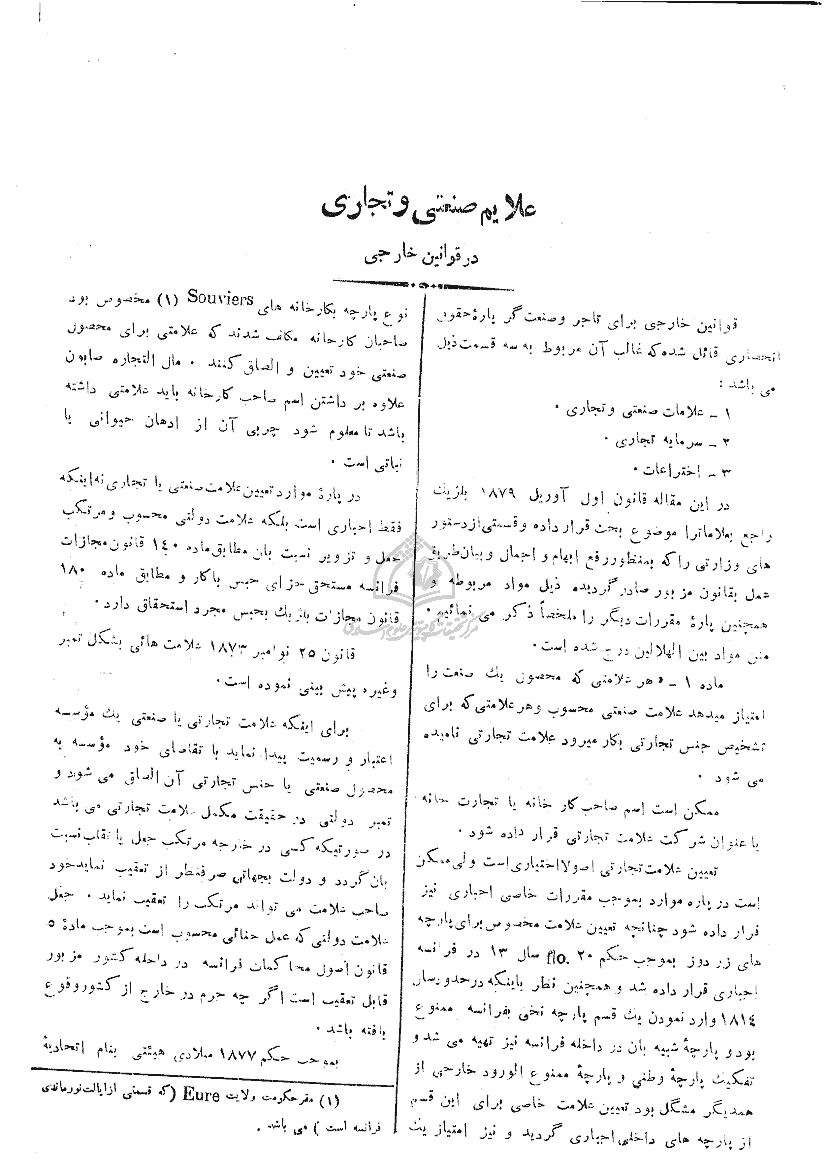 علایم صنعتی و تجاری
در قوانین خارجی
قوانین خارجی برای تاجر و صنعت گر پارۀ حقوق
انحصاری قائل شده که غالب آن مربوط به سه قسمت ذیل
می باشد :
۱ ـ علامات صنعتی و تجاری ۰
۲ ـ سرمایه تجاری ۰
۳ ـ اختراعات ۰
در این مقاله قانون اول آوریل ۱۸۷۹ بلژیك
راجع بعلامات را موضوع بحث قرار داده و قسمتی از دستور
های وزارتی را که بمنظور رفع ابهام و اجمال و بیان طریق
عمل بقانون مزبور صادر گردیده ذیل مواد مربوطه و
همچنین پارۀ مقررات دیگر را ملخصاً ذکر می نمائیم ۰
متن مواد بین الهلالین درج شده است ۰
ماده ۱ ـ «هر علامتی که محصول یك صنعت را
امتیاز میدهد علامت صنعتی محسوب و هر علامتی که برای
تشخیص جنس تجارتی بکار میرود علامت تجارتی نامیده
می شود ۰
ممکن است اسم صاحب کار خانه یا تجارت خانه
یا عنوان شرکت علامت تجارتی قرار داده شود ۰
تعیین علامت تجارتی اصولا اختیاری است ولی ممکن
است در پاره موارد بموجب مقررات خاصی اجباری نیز
قرار داده شود چنانچه تعیین علامت مخصوص برای پارچه
های زر دوز بموجب حکم ۲۰ flo. سال ۱۳ در فرانسه
اجباری قرار داده شد و همچنین نظر باینکه در حدود سال
۱۸۱٤ وارد نمودن یك قسم پارچه نخی بفرانسه ممنوع
بود و پارچۀ شبیه بان در داخله فرانسه نیز تهیه می شد و
تفکیك پارچۀ وطنی و پارچۀ ممنوع الورود خارجی از
همدیگر مشگل بود تعیین علامت خاصی برای این قسم
از پارچه های داخلی اجباری گردید و نیز امتیاز یك
نوع پارچه بکارخانه های Souviers (۱) مخصوص بود
صاحبان کارخانه مکلف شدند که علامتی برای محصول
صنعتی خود تعیین و الصاق کنند ۰ مال التجاره صابون
علاوه بر داشتن اسم صاحب کارخانه باید علامتی داشته
باشد تا معلوم شود چربی آن از ادهان حیوانی یا
نباتی است ۰
در پارۀ موارد تعیین علامت صنعتی یا تجاری نه اینکه
فقط اجباری است بلکه علامت دولتی محسوب و مرتکب
جعل و تزویر نسبت بان مطابق ماده ۱٤۰ قانون مجازات
فرانسه مستحق جزای حبس باکار و مطابق ماده ۱۸۰
قانون مجازات بلژیك بحبس مجرد استحقاق دارد ۰
قانون ۲۵ نوامبر ۱۸۷۳ علامت هائی بشکل تمبر
وغیره پیش بینی نموده است ۰
برای اینکه علامت تجارتی یا صنعتی یك مؤسسه
اعتبار و رسمیت پیدا نماید با تقاضای خود مؤسسه به
محصول صنعتی یا جنس تجارتی آن الصاق می شود و
تمبر دولتی در حقیقت مکمل علامت تجارتی می باشد
در صورتیکه کسی در خارجه مرتکب جعل یا تقلب نسبت
بان گردد و دولت بجهاتی صرفنظر از تعقیب نماید خود
صاحب علامت می تواند مرتکب را تعقیب نماید ۰ جعل
علامت دولتی که عمل جنائی محسوب است بموجب مادۀ ۵
قانون اصول محاکمات فرانسه در داخله کشور مزبور
قابل تعقیب است اگر چه جرم در خارج از کشور وقوع
یافته باشد ۰
بموجب حکم ۱۸۷۷ میلادی هیئتی بنام اتحادیۀ
(۱) مقر حکومت ولایت Eure (که قسمتی از ایالت نورماندی
فرانسه است ) می باشد ۰